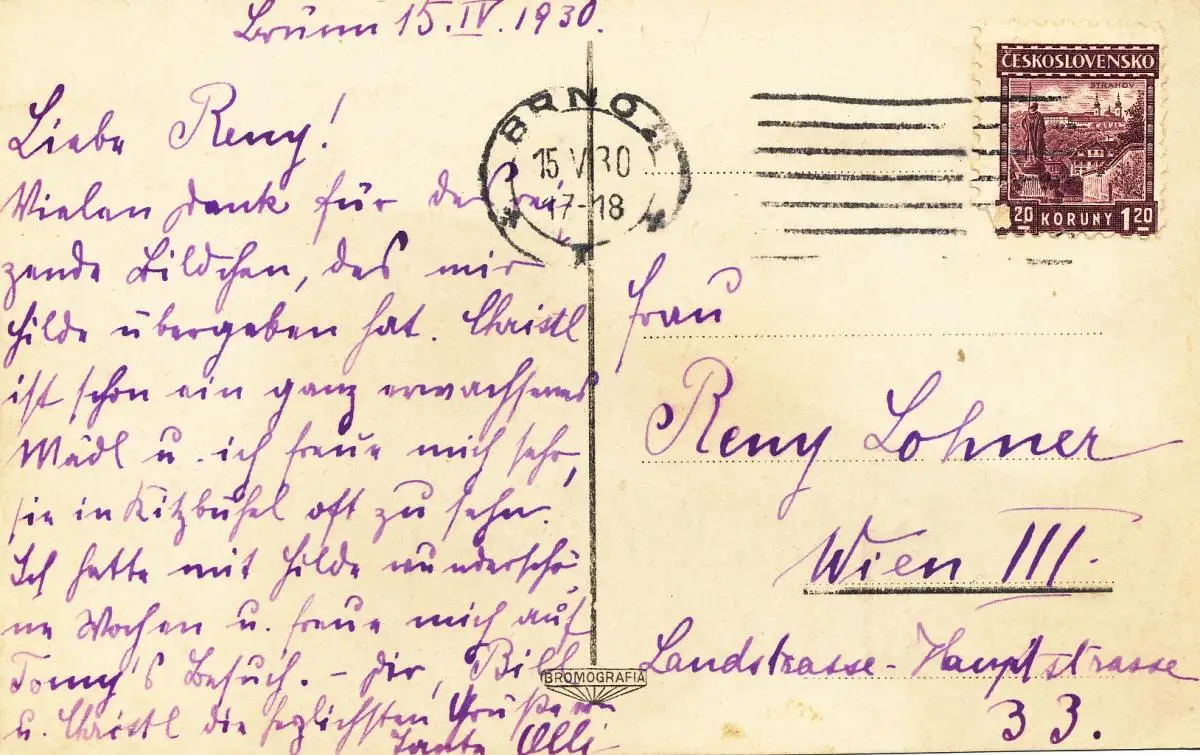 Brünn 15.IV.1930.
Liebe Reny!
Vielen Dank für das rei-
zende Bildchen, das mir
Hilde übergeben hat. Christl
ist schon ein ganz erwachsenes
Mädl u. ich freue mich sehr,
sie in Kitzbühel oft zu sehn.
Ich hatte mit Hilde wunderschö-
ne Wochen u. freue mich auf
Tomy's Besuch. - Dir, Bill
u. Christl die herzlichsten Grüße von
Tante Olli
BRNO 2
15.V.30
17-18
ČESKOSLOVENSKO
STRAHOV
1.20 KORUNY 1.20
Frau
Reny Lohner
Wien III.
Landstrasse-Hauptstrasse
33.
BROMOGRAFIA